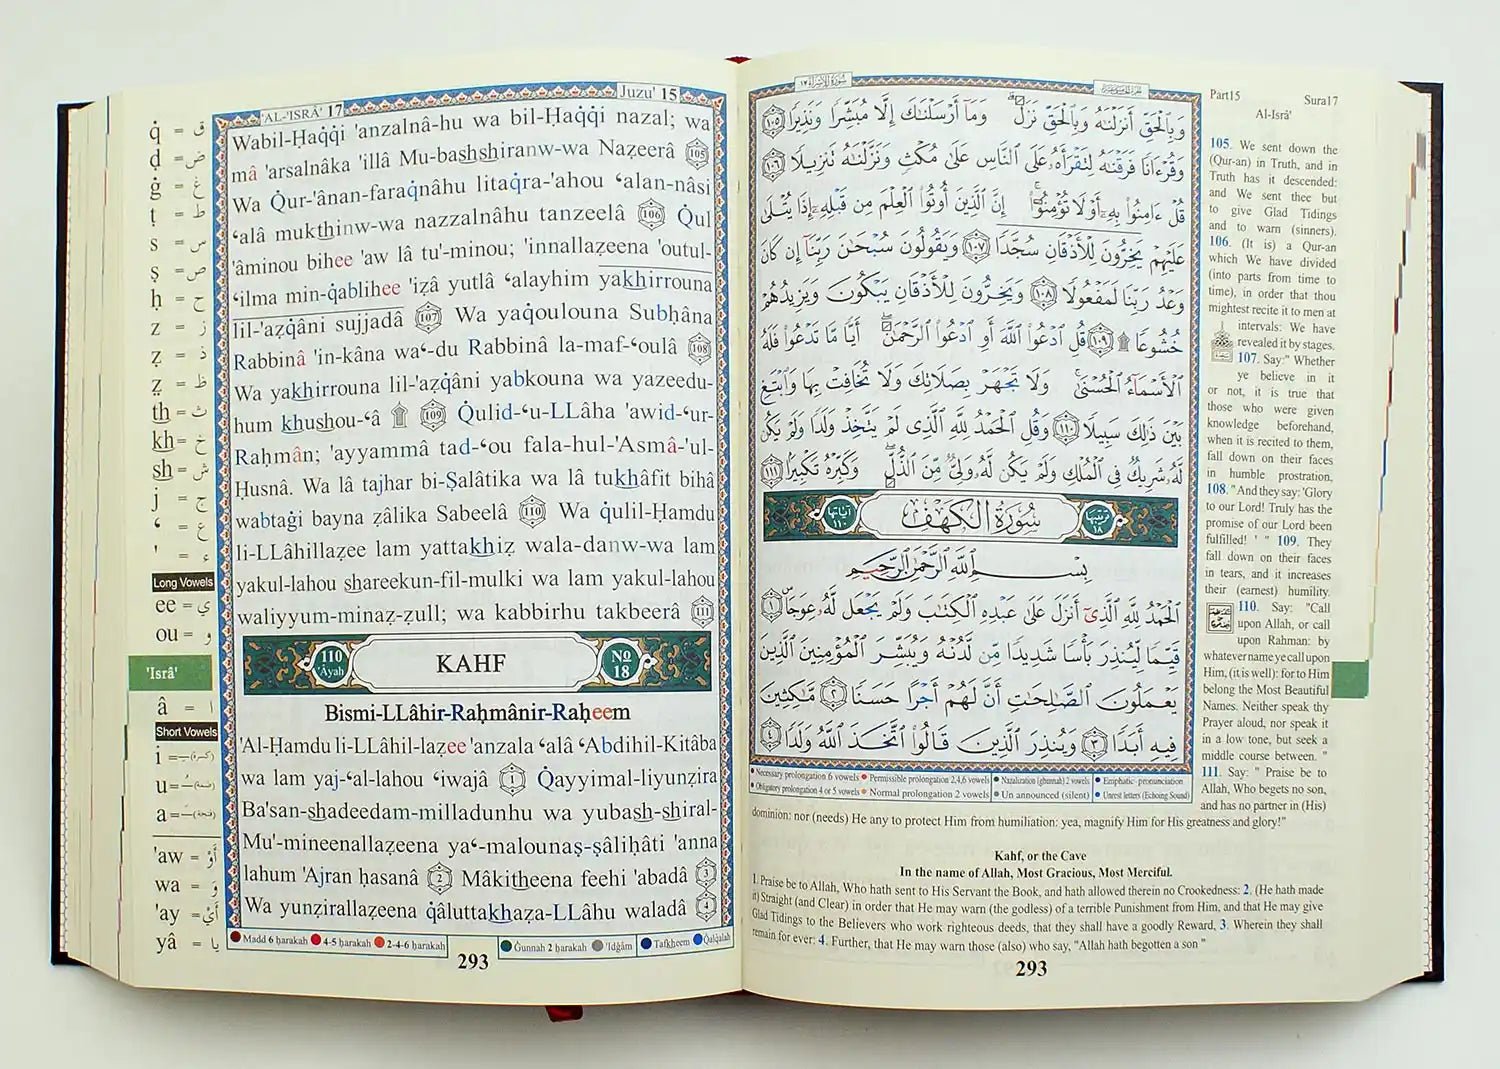 'AL-'ISRÂ' 17
Juzu' 15
q̇ = ق
ḍ = ض
ġ = غ
ṭ = ط
s = س
ṣ = ص
ḥ = ح
z = ز
ẓ = ذ
ẓ = ظ
th = ث
kh = خ
sh = ش
j = ج
ʻ = ع
' = ء
Long Vowels
ee = ي
ou = و
'Isrâ'
â = ا
Short Vowels
i = (كسرة)
u = (ضمة)
a = (فتحة)
'aw = أَوْ
wa = وَ
'ay = أَيْ
yâ = يا
Wabil-Ḥaq̇q̇i 'anzalnâ-hu wa bil-Ḥaq̇q̇i nazal; wa
mâ 'arsalnâka 'illâ Mu-bashshiranw-wa Naẓeerâ 105
Wa Q̇ur-'ânan-faraq̇nâhu litaq̇ra-'ahou ʻalan-nâsi
ʻalâ mukthinw-wa nazzalnâhu tanzeelâ 106 Q̇ul
'âminou bihee 'aw lâ tu'-minou; 'innallaẓeena 'outul-
ʻilma min-q̇ablihee 'iẓâ yutlâ ʻalayhim yakhirrouna
lil-'aẓq̇âni sujjadâ 107 Wa yaq̇oulouna Subḥâna
Rabbinâ 'in-kâna waʻ-du Rabbinâ la-maf-ʻoulâ 108
Wa yakhirrouna lil-'aẓq̇âni yabkouna wa yazeedu-
hum khushou-ʻâ ۩ 109 Q̇ulid-ʻu-LLâha 'awid-ʻur-
Raḥmân; 'ayyammâ tad-ʻou fala-hul-'Asmâ-'ul-
Ḥusnâ. Wa lâ tajhar bi-Ṣalâtika wa lâ tukhâfit bihâ
wabtaġi bayna ẓâlika Sabeelâ 110 Wa q̇ulil-Ḥamdu
li-LLâhillaẓee lam yattakhiẓ wala-danw-wa lam
yakul-lahou shareekun-fil-mulki wa lam yakul-lahou
waliyyum-minaẓ-ẓull; wa kabbirhu takbeerâ 111
110 'Âyah KAHF No 18
Bismi-LLâhir-Raḥmânir-Raḥeem
'Al-Ḥamdu li-LLâhil-laẓee 'anzala ʻalâ ʻAbdihil-Kitâba
wa lam yaj-ʻal-lahou ʻiwajâ 1 Q̇ayyimal-liyunẓira
Ba'san-shadeedam-milladunhu wa yubash-shiral-
Mu'-mineenallaẓeena yaʻ-malounaṣ-ṣâliḥâti 'anna
lahum 'Ajran ḥasanâ 2 Mâkitheena feehi 'abadâ 3
Wa yunẓirallaẓeena q̇âluttakhaẓa-LLâhu waladâ 4
Madd 6 ḥarakah 4-5 ḥarakah 2-4-6 ḥarakah Gunnah 2 ḥarakah 'Idġâm Tafkheem Qalqalah
293
سُورَةُ الْإِسْرَاءِ ١٧
وَبِالْحَقِّ أَنزَلْنَاهُ وَبِالْحَقِّ نَزَلَ ۗ وَمَا أَرْسَلْنَاكَ إِلَّا مُبَشِّرًا وَنَذِيرًا ١٠٥
وَقُرْءَانًا فَرَقْنَاهُ لِتَقْرَأَهُ عَلَى النَّاسِ عَلَىٰ مُكْثٍ وَنَزَّلْنَاهُ تَنزِيلًا ١٠٦
قُلْ ءَامِنُوا بِهِ أَوْ لَا تُؤْمِنُوا ۚ إِنَّ الَّذِينَ أُوتُوا الْعِلْمَ مِن قَبْلِهِ إِذَا يُتْلَىٰ
عَلَيْهِمْ يَخِرُّونَ لِلْأَذْقَانِ سُجَّدًا ١٠٧ وَيَقُولُونَ سُبْحَانَ رَبِّنَا إِن كَانَ
وَعْدُ رَبِّنَا لَمَفْعُولًا ١٠٨ وَيَخِرُّونَ لِلْأَذْقَانِ يَبْكُونَ وَيَزِيدُهُمْ
خُشُوعًا ۩ ١٠٩ قُلِ ادْعُوا اللَّهَ أَوِ ادْعُوا الرَّحْمَٰنَ ۖ أَيًّا مَّا تَدْعُوا فَلَهُ
الْأَسْمَاءُ الْحُسْنَىٰ ۚ وَلَا تَجْهَرْ بِصَلَاتِكَ وَلَا تُخَافِتْ بِهَا وَابْتَغِ
بَيْنَ ذَٰلِكَ سَبِيلًا ١١٠ وَقُلِ الْحَمْدُ لِلَّهِ الَّذِي لَمْ يَتَّخِذْ وَلَدًا وَلَمْ يَكُن
لَّهُ شَرِيكٌ فِي الْمُلْكِ وَلَمْ يَكُن لَّهُ وَلِيٌّ مِّنَ الذُّلِّ ۖ وَكَبِّرْهُ تَكْبِيرًا ١١١
ترتيبها ١٨ سُورَةُ الْكَهْفِ آياتها ١١٠
بِسْمِ اللَّهِ الرَّحْمَٰنِ الرَّحِيمِ
الْحَمْدُ لِلَّهِ الَّذِي أَنزَلَ عَلَىٰ عَبْدِهِ الْكِتَابَ وَلَمْ يَجْعَل لَّهُ عِوَجَا ١
قَيِّمًا لِّيُنذِرَ بَأْسًا شَدِيدًا مِّن لَّدُنْهُ وَيُبَشِّرَ الْمُؤْمِنِينَ الَّذِينَ
يَعْمَلُونَ الصَّالِحَاتِ أَنَّ لَهُمْ أَجْرًا حَسَنًا ٢ مَّاكِثِينَ
فِيهِ أَبَدًا ٣ وَيُنذِرَ الَّذِينَ قَالُوا اتَّخَذَ اللَّهُ وَلَدًا ٤
Necessary prolongation 6 vowels Permissible prolongation 2,4,6 vowels Nazalization (ghunnah) 2 vowels Emphatic pronunciation
Obligatory prolongation 4 or 5 vowels Normal prolongation 2 vowels Un announced (silent) Unrest letters (Echoing Sound)
Part15 Sura17
Al-Isrâ'
105. We sent down the
(Qur-an) in Truth, and in
Truth has it descended:
and We sent thee but
to give Glad Tidings
and to warn (sinners).
106. (It is) a Qur-an
which We have divided
(into parts from time to
time), in order that thou
mightest recite it to men at
intervals: We have
revealed it by stages.
107. Say:" Whether
ye believe in it
or not, it is true that
those who were given
knowledge beforehand,
when it is recited to them,
fall down on their faces
in humble prostration,
108. "And they say: 'Glory
to our Lord! Truly has the
promise of our Lord been
fulfilled! ' " 109. They
fall down on their faces
in tears, and it increases
their (earnest) humility.
110. Say: "Call
upon Allah, or call
upon Rahman: by
whatever name ye call upon
Him, (it is well): for to Him
belong the Most Beautiful
Names. Neither speak thy
Prayer aloud, nor speak it
in a low tone, but seek a
middle course between. "
111. Say: " Praise be to
Allah, Who begets no son,
and has no partner in (His)
dominion: nor (needs) He any to protect Him from humiliation: yea, magnify Him for His greatness and glory!"
Kahf, or the Cave
In the name of Allah, Most Gracious, Most Merciful.
1. Praise be to Allah, Who hath sent to His Servant the Book, and hath allowed therein no Crookedness: 2. (He hath made
it) Straight (and Clear) in order that He may warn (the godless) of a terrible Punishment from Him, and that He may give
Glad Tidings to the Believers who work righteous deeds, that they shall have a goodly Reward, 3. Wherein they shall
remain for ever: 4. Further, that He may warn those (also) who say, "Allah hath begotten a son "
293